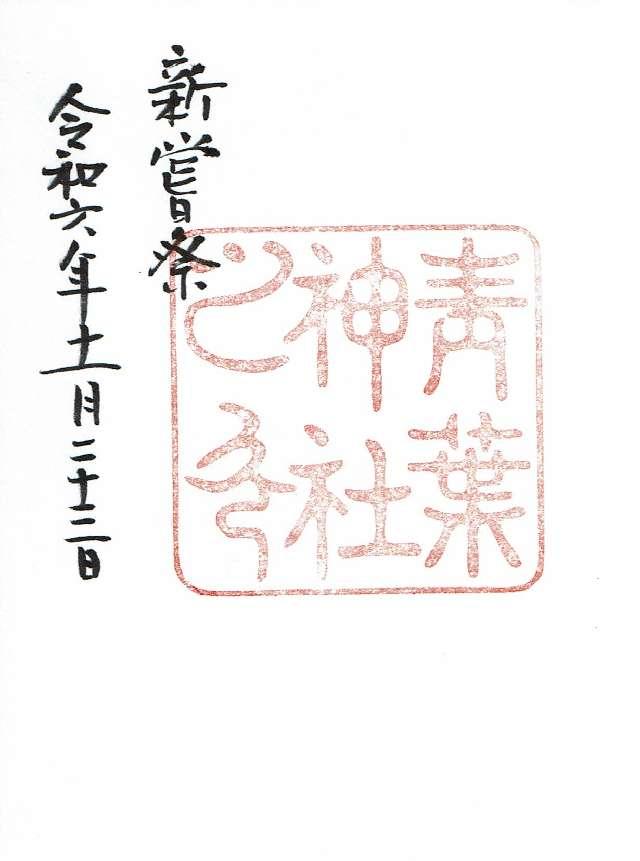 青葉
神社
之印
新嘗祭
令和六年十一月二十三日